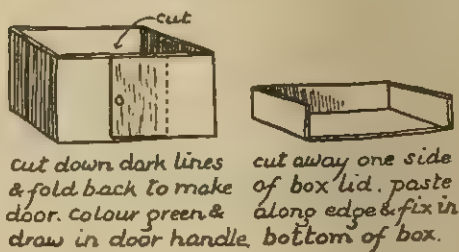 cut
cut down dark lines
& fold back to make
door. colour green &
draw in door handle
cut away one side
of box lid. paste
along edge & fix in
bottom of box.